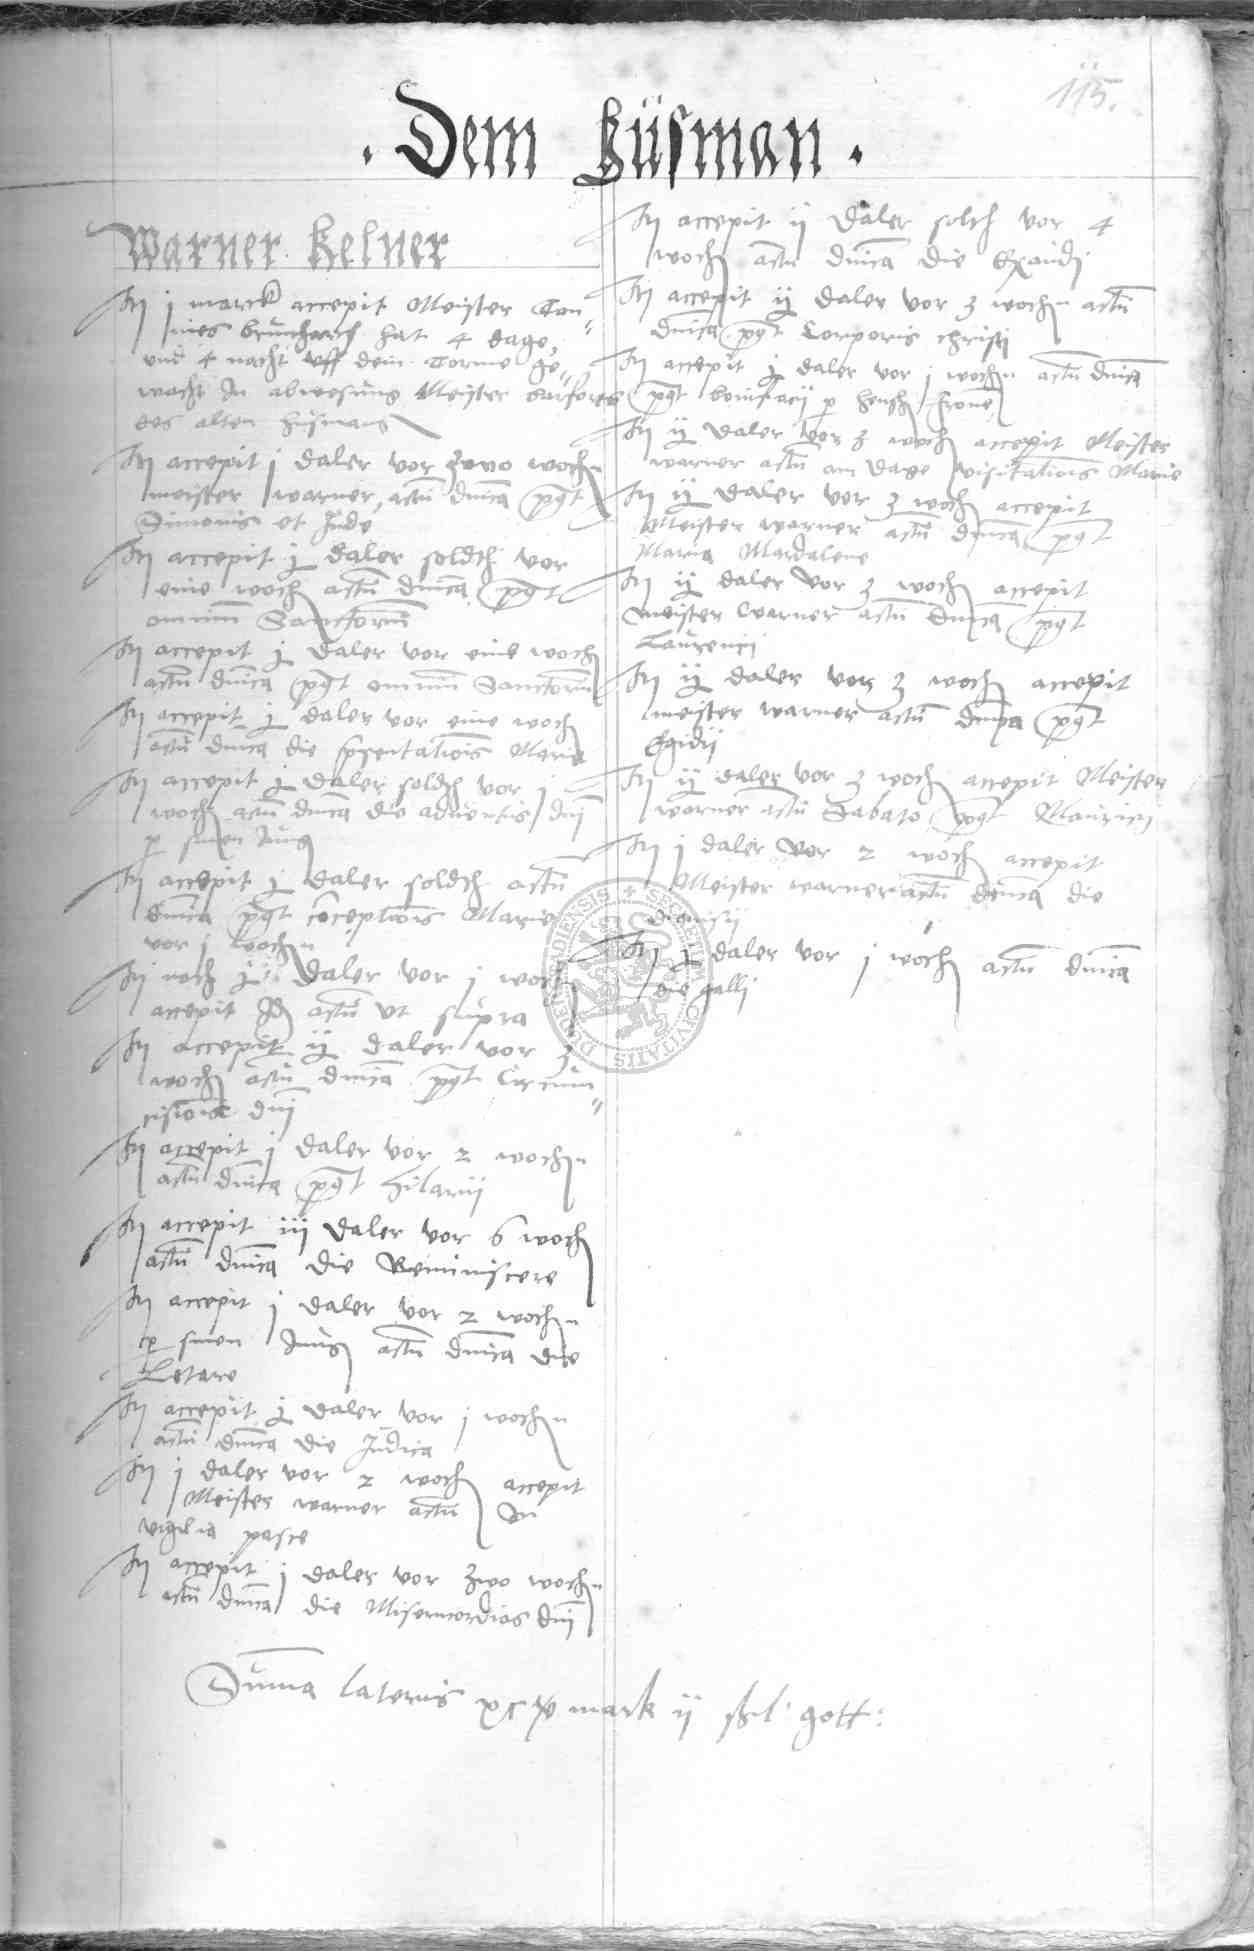 115.
. Dem Hüsman .
Warner Kelner
Itẽ j marck accepit Meister Ton¬
nies hat 4 dage,
und 4 nacht vff dem Torme ge¬
wacht In abwesung Meister
des alten hüsmans
Itẽ accepit j daler vor zwo wochñ
meister warner, actũ dnĩca pͦt
Simonis et Jude
Itẽ accepit j daler soldth vor
eine woch actũ dnĩca pͦt
omniũ Sanctorũ
Itẽ accepit j daler vor eine woch
actũ dnĩca pͦt omniũ Sanctorũ
Itẽ accepit j daler vor eine woch
actũ dnĩca die pñtatiõis Marie
Itẽ accepit j daler soldth vor j
woch actũ dnĩca die adventus dnĩ
p sinen Jung
Itẽ accepit j daler soldth actũ
dnĩca pͦt cõceptiõis Marie
vor j wochñ
Itẽ noch j daler vor j woch
accepit Idẽ actũ vt supra
Itẽ accepit ij daler vor 3
woch actũ dnĩca pͦt Circum¬
cisionis dnĩ
Itẽ accepit j daler vor 2 wochñ
actũ dnĩca pͦt Hilarii
Itẽ accepit iij daler vor 6 woch
actũ dnĩca die Reminiscere
Itẽ accepit j daler vor 2 wochñ
p sinen Jung actũ dnĩca die
Letare
Itẽ accepit j daler vor j wochñ
actũ dnĩca die Judica
Itẽ j daler vor 2 woch accepit
Meister warner actũ In
vigilia pasce
Itẽ accepit j daler vor zwo wochñ
actũ dnĩca die Misericordias dnĩ
Itẽ accepit ij daler solth vor 4
woch actũ dnĩca die Exaudi
Itẽ accepit ij daler vor 3 wochñ actũ
dnĩca pͦt Corporis christi
Itẽ accepit j daler vor j wochñ actũ dnĩca
pͦt bonifacii p frone
Itẽ ij daler vor 3 woch accepit Meister
warner actũ am dage visitationis Marie
Itẽ ij daler vor 3 woch accepit
Meister warner actũ dnĩca pͦt
Maria Mardalene
Itẽ ij daler vor 3 woch accepit
meister warner actũ dnĩca pͦt
Laurencij
Itẽ ij daler vor 3 woch accepit
meister warner actũ dnĩca pͦt
Egidii
Itẽ ij daler vor 3 woch accepit Meister
warner actũ Sabato pͦt Mauricij
Itẽ j daler vor 2 woch accepit
Meister warner actũ dnĩca die
dionisij
Itẽ j daler vor j woch actũ dnĩca
die galli
Sũma lateris mark ij gott: